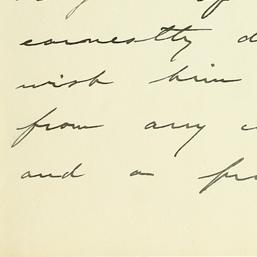 earnestly
wish him
from any
and a